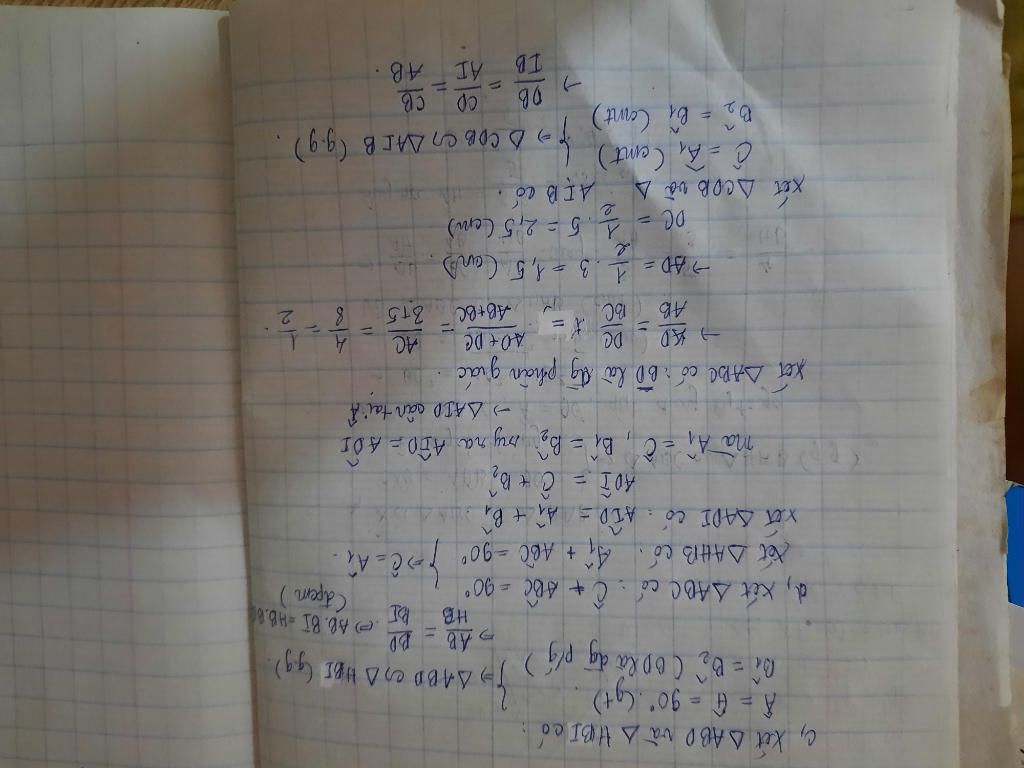 c, Xét ΔABD và ΔHBI có :
Â = Ĥ = 90° (gt)
B̂₁ = B̂₂ (BD là đg p/g) } ⇒ ΔABD ∽ ΔHBI (g.g).
→ AB/HB = BD/BI ⇒ AB.BI = HB.BD
(đpcm)
d, Xét ΔABC có : Ĉ + AB̂C = 90°
Xét ΔAHB có : Â₁ + AB̂C = 90° } ⇒ Ĉ = Â₁.
Xét ΔADI có : AÎD = Â₁ + B̂₁
AD̂I = Ĉ + B̂₂
mà Â₁ = Ĉ, B̂₁ = B̂₂ suy ra AÎD = AD̂I
→ ΔAID cân tại A
Xét ΔABC có : BD là đg phân giác.
→ AD/AB = DC/BC = AD+DC/AB+BC = AC/3+5 = 4/8 = 1/2.
→ AD = 1/2 . 3 = 1,5 (cm).
DC = 1/2 . 5 = 2,5 (cm)
Xét ΔCDB và Δ AIB có :
Ĉ = Â₁ (cmt)
B̂₂ = B̂₁ (cmt) } ⇒ ΔCDB ∽ ΔAIB (g.g).
→ DB/IB = CD/AI = CB/AB.